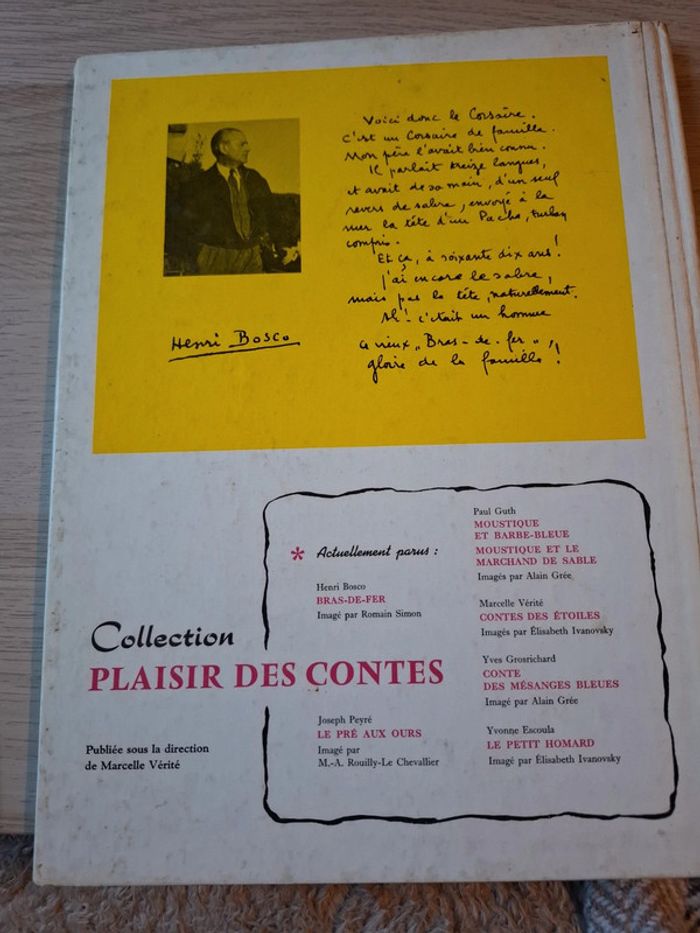 Voici donc le Corsaire.
C'est un Corsaire de famille.
Mon père l'avait bien connu.
Il parlait treize langues,
et avait de sa main, d'un seul
revers de sabre, envoyé à la
mer la tête d'un Pacha, turban
compris.
Et ça, à soixante dix ans !
J'ai encore le sabre,
mais pas la tête, naturellement.
Ah ! c'était un homme
ce vieux „Bras-de-fer",
gloire de la famille !
Henri Bosco
* Actuellement parus :
Henri Bosco
BRAS-DE-FER
Imagé par Romain Simon
Paul Guth
MOUSTIQUE
ET BARBE-BLEUE
MOUSTIQUE ET LE
MARCHAND DE SABLE
Imagés par Alain Grée
Marcelle Vérité
CONTES DES ÉTOILES
Imagés par Élisabeth Ivanovsky
Yves Grosrichard
CONTE
DES MÉSANGES BLEUES
Imagé par Alain Grée
Joseph Peyré
LE PRÉ AUX OURS
Imagé par
M.-A. Rouilly-Le Chevallier
Yvonne Escoula
LE PETIT HOMARD
Imagé par Élisabeth Ivanovsky
Collection
PLAISIR DES CONTES
Publiée sous la direction
de Marcelle Vérité